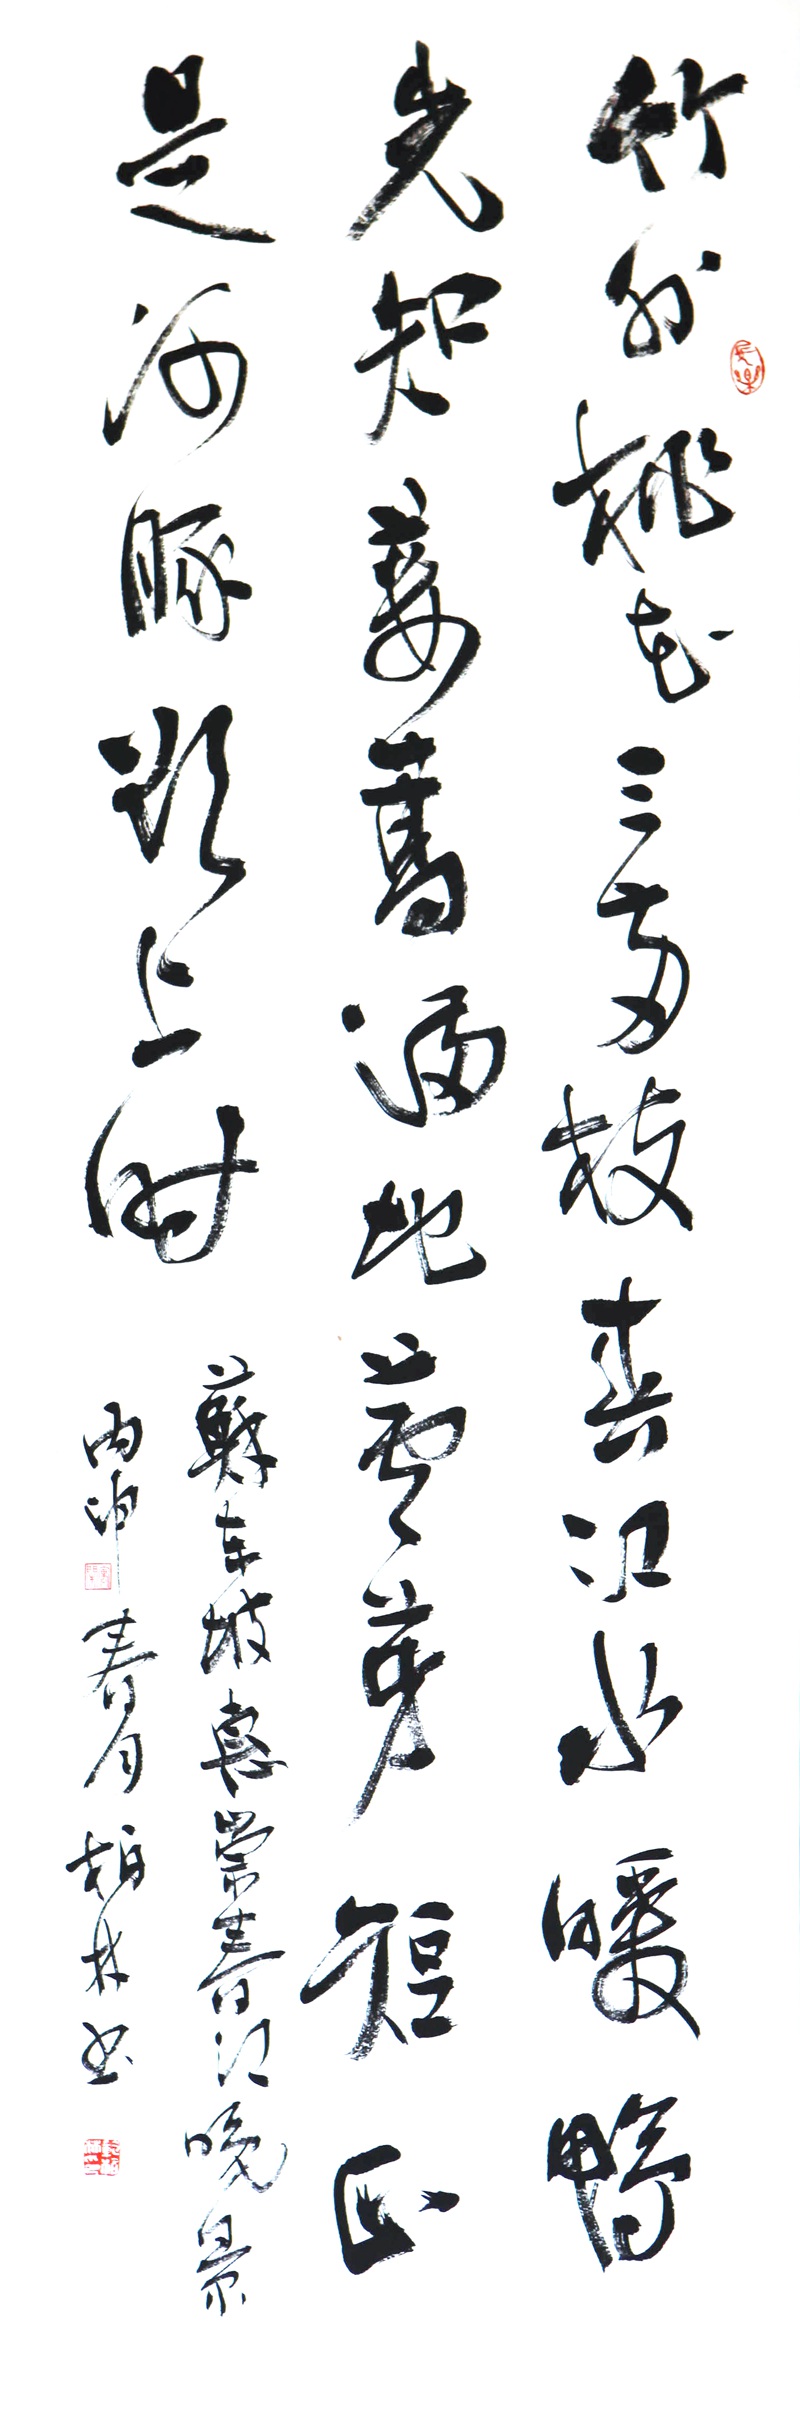 竹外桃花三両枝春江水暖鴨
先知蔞蒿滿地蘆芽短正
是河豚欲上时
蘇东坡惠崇春江晚景
丙申春月柏林书